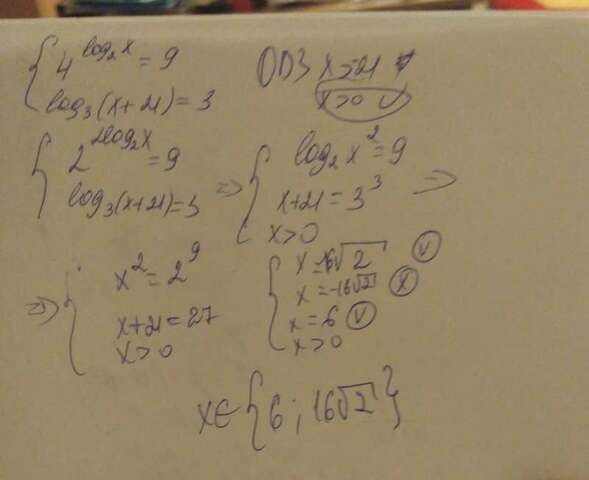 4^log₂x = 9
ОДЗ x>-21
log₃(x+21) = 3
x>0 v
2^2log₂x = 9
log₃(x+21) = 3
=> log₂x² = 9
x+21 = 3³ =>
x>0
=> x² = 2⁹
x+21 = 27
x>0
x = 16√2 v
x = -16√2 x
x = 6 v
x>0
x∈{6; 16√2}